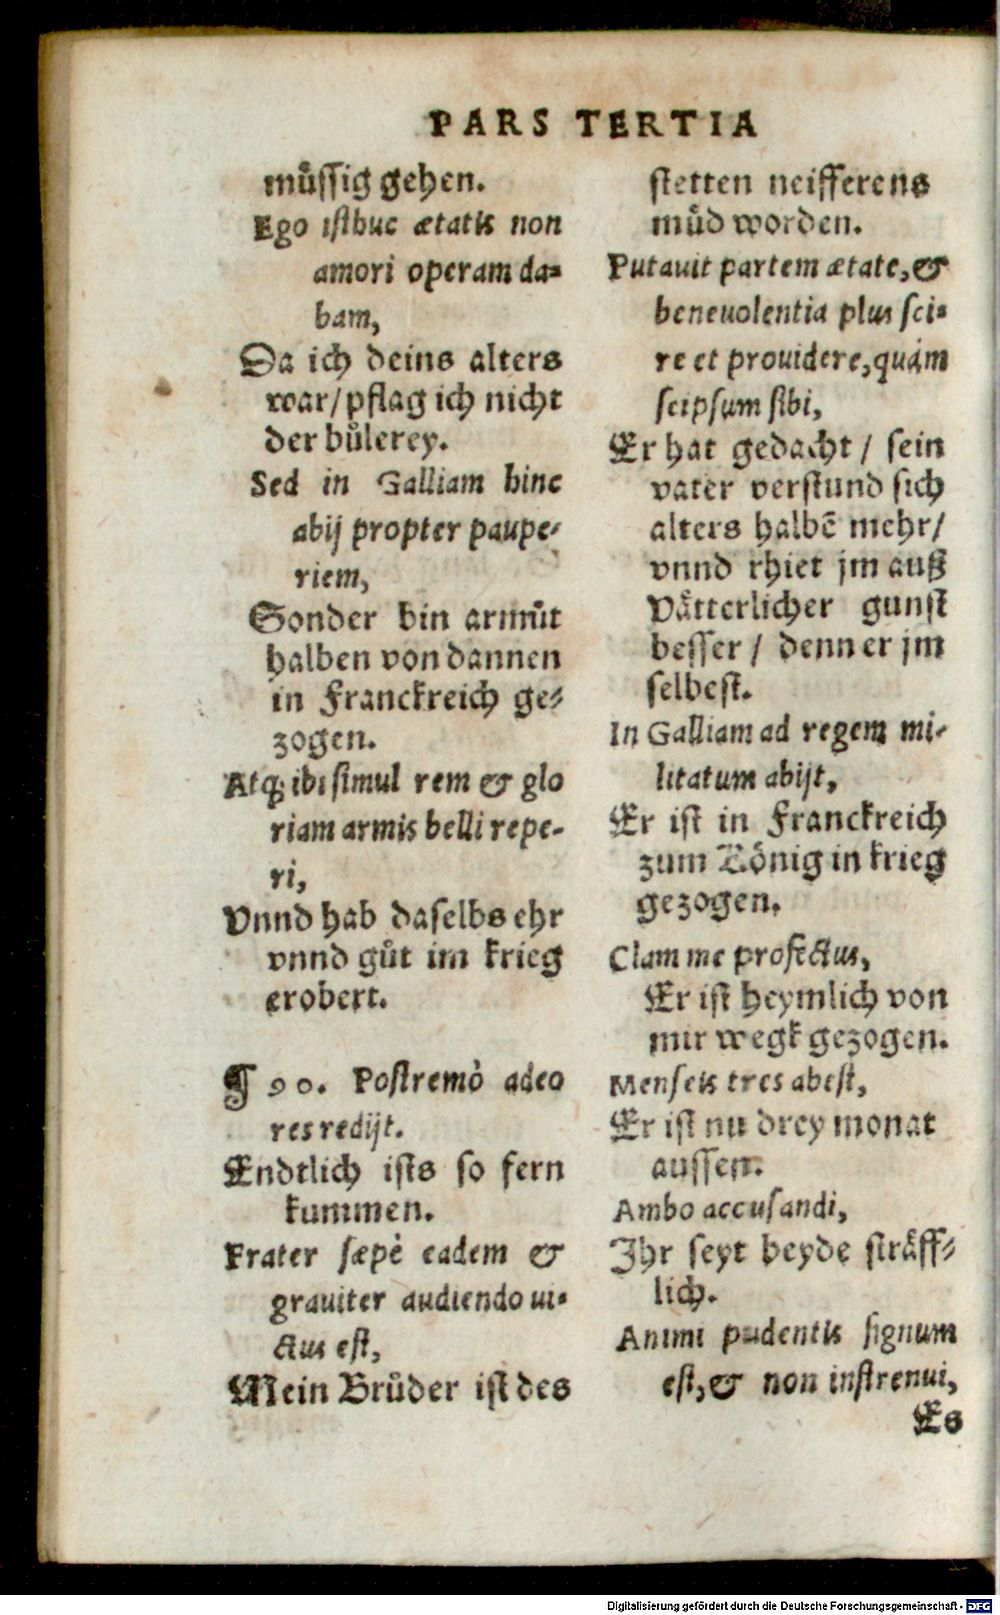 PARS TERTIA
muͤſſig gehen.
Ego iſthuc ætatis non
amori operam da-
bam,
Da ich deins alters
war/pflag ich nicht
der buͤlerey.
Sed in Galliam hinc
abij propter paupe-
riem,
Sonder bin armuͦt
halben von dannen
in Franckreich ge-
zogen.
Atq; ibi ſimul rem & glo
riam armis belli repe-
ri,
Vnnd hab daſelbs ehr
vnnd guͦt im krieg
erobert.
¶ 90. Poſtremò adeo
res redijt.
Endtlich iſts ſo fern
kummen.
Frater ſæpè eadem &
grauiter audiendo ui-
ctus eſt,
Mein Bruͦder iſt des
ſtetten neifferens
muͤd worden.
Putauit partem ætate,&
beneuolentia plus ſci-
re et prouidere,quàm
ſeipſum ſibi,
Er hat gedacht / ſein
vater verſtund ſich
alters halbē mehr/
vnnd rhiet jm auß
Vaͤtterlicher gunſt
beſſer / denn er jm
ſelbeſt.
In Galliam ad regem mi-
litatum abijt,
Er iſt in Franckreich
zum Koͤnig in krieg
gezogen.
Clam me profectus,
Er iſt heymlich von
mir wegk gezogen.
Menſeis tres abeſt,
Er iſt nu drey monat
auſſen.
Ambo accuſandi,
Jhr ſeyt beyde ſtraͤff-
lich.
Animi pudentis ſignum
eſt,& non inſtrenui,
Es
Digitalisierung gefördert durch die Deutsche Forschungsgemeinschaft - DFG